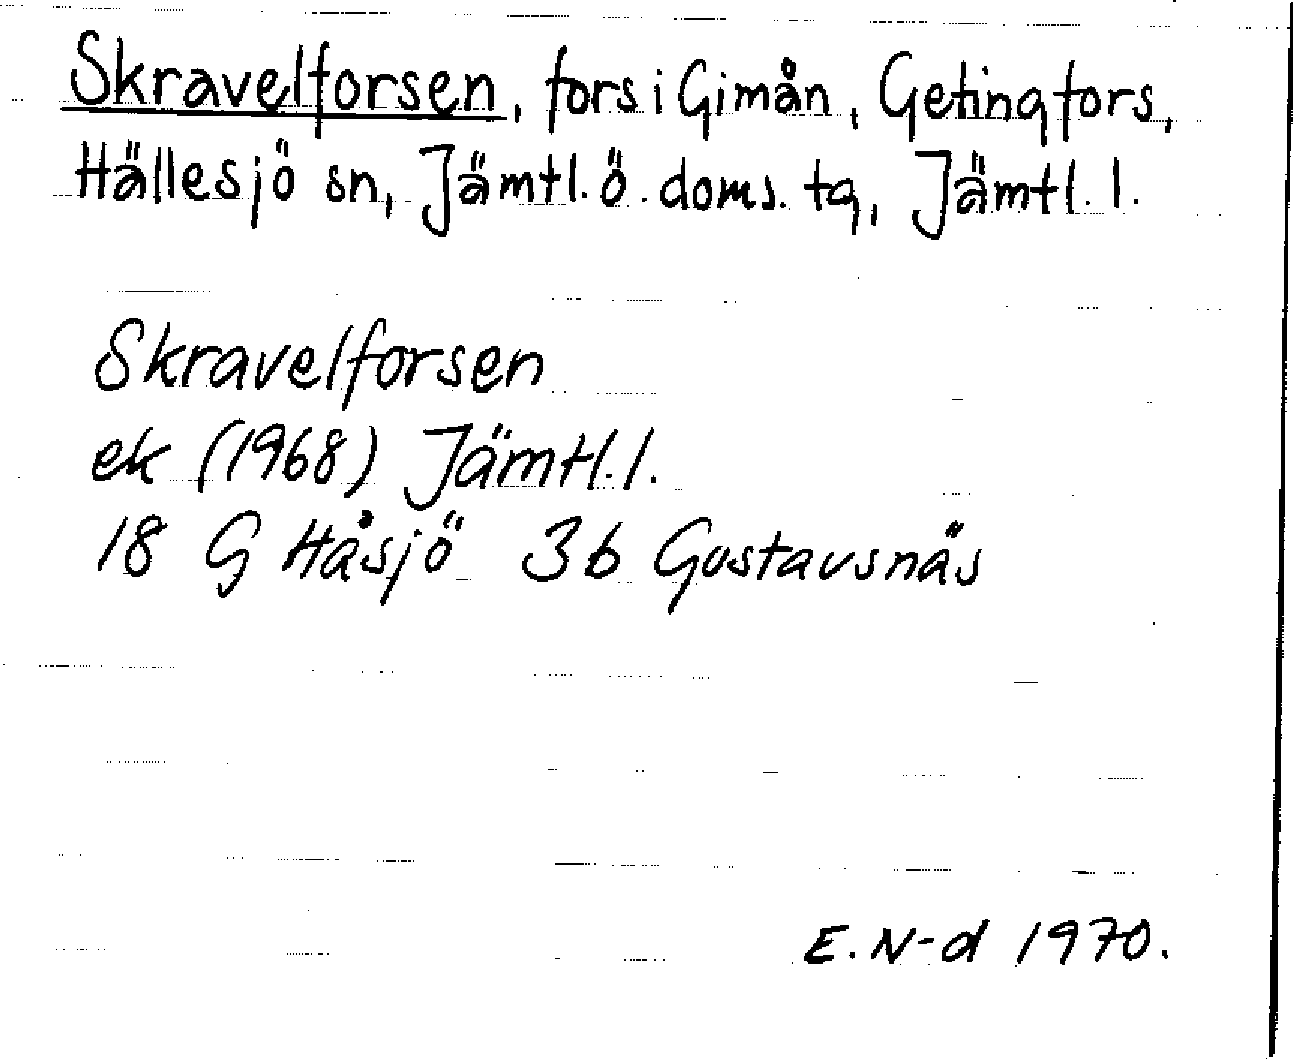 Skravelforsen, fors i Gimån, Getingfors,
Hällesjö sn, Jämtl. ö. doms. tg, Jämtl. l.
Skravelforsen
ek (1968) Jämtl. l.
18 G Håsjö 3b Gustavsnäs
E. N-d 1970.